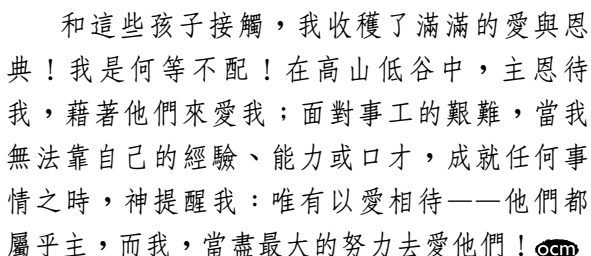 和這些孩子接觸，我收穫了滿滿的愛與恩
典！我是何等不配！在高山低谷中，主恩待
我，藉著他們來愛我；面對事工的艱難，當我
無法靠自己的經驗、能力或口才，成就任何事
情之時，神提醒我：唯有以愛相待——他們都
屬乎主，而我，當盡最大的努力去愛他們！ocm